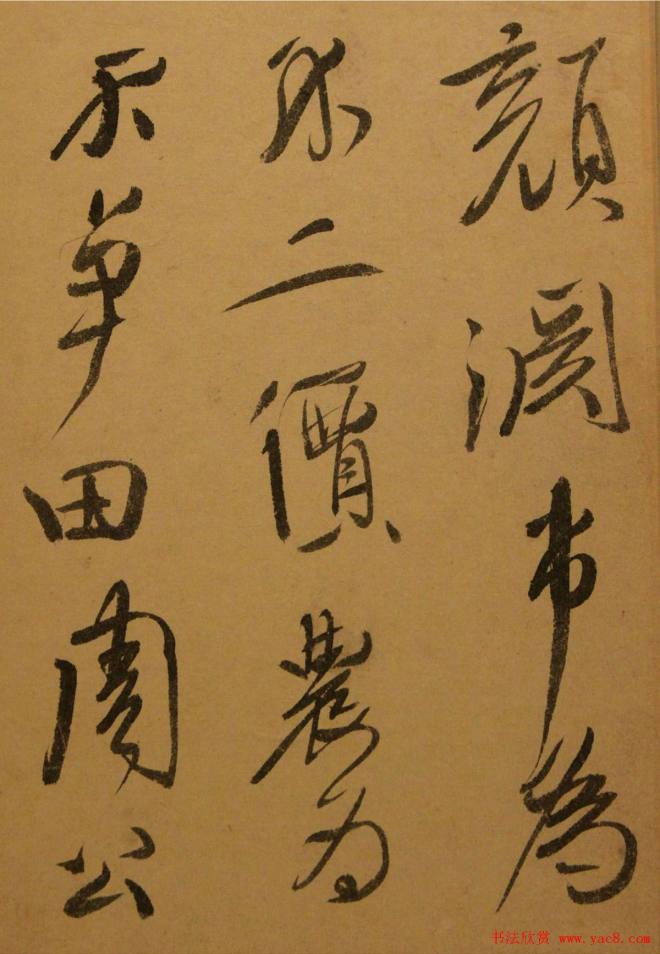 顏淵市為
不二價農為
不爭田周公
书法欣赏 www.yac8.com